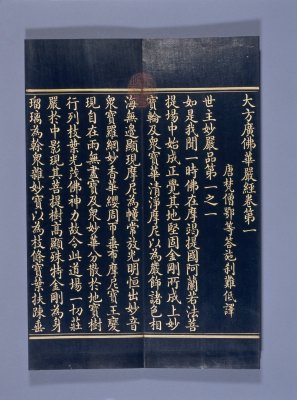 大方廣佛華嚴經卷第一
唐梵僧難譯
世主妙嚴品第一之一
如是我聞一時佛在摩竭提國阿蘭若法菩
提場中始成正覺其地堅固金剛所成上妙
寶輪及眾寶華清淨摩尼以為嚴飾諸色相
海無邊顯現摩尼為幢常放光明恒出妙音
眾寶羅網妙香華纓周帀垂布摩尼寶王變
現自在雨無盡寶及眾妙華分散於地寶樹
行列枝葉光茂佛神力故令此道場一切莊
嚴於中影現其菩提樹高顯殊特金剛為身
瑠璃為幹眾雜妙寶以為枝條寶葉扶踈垂